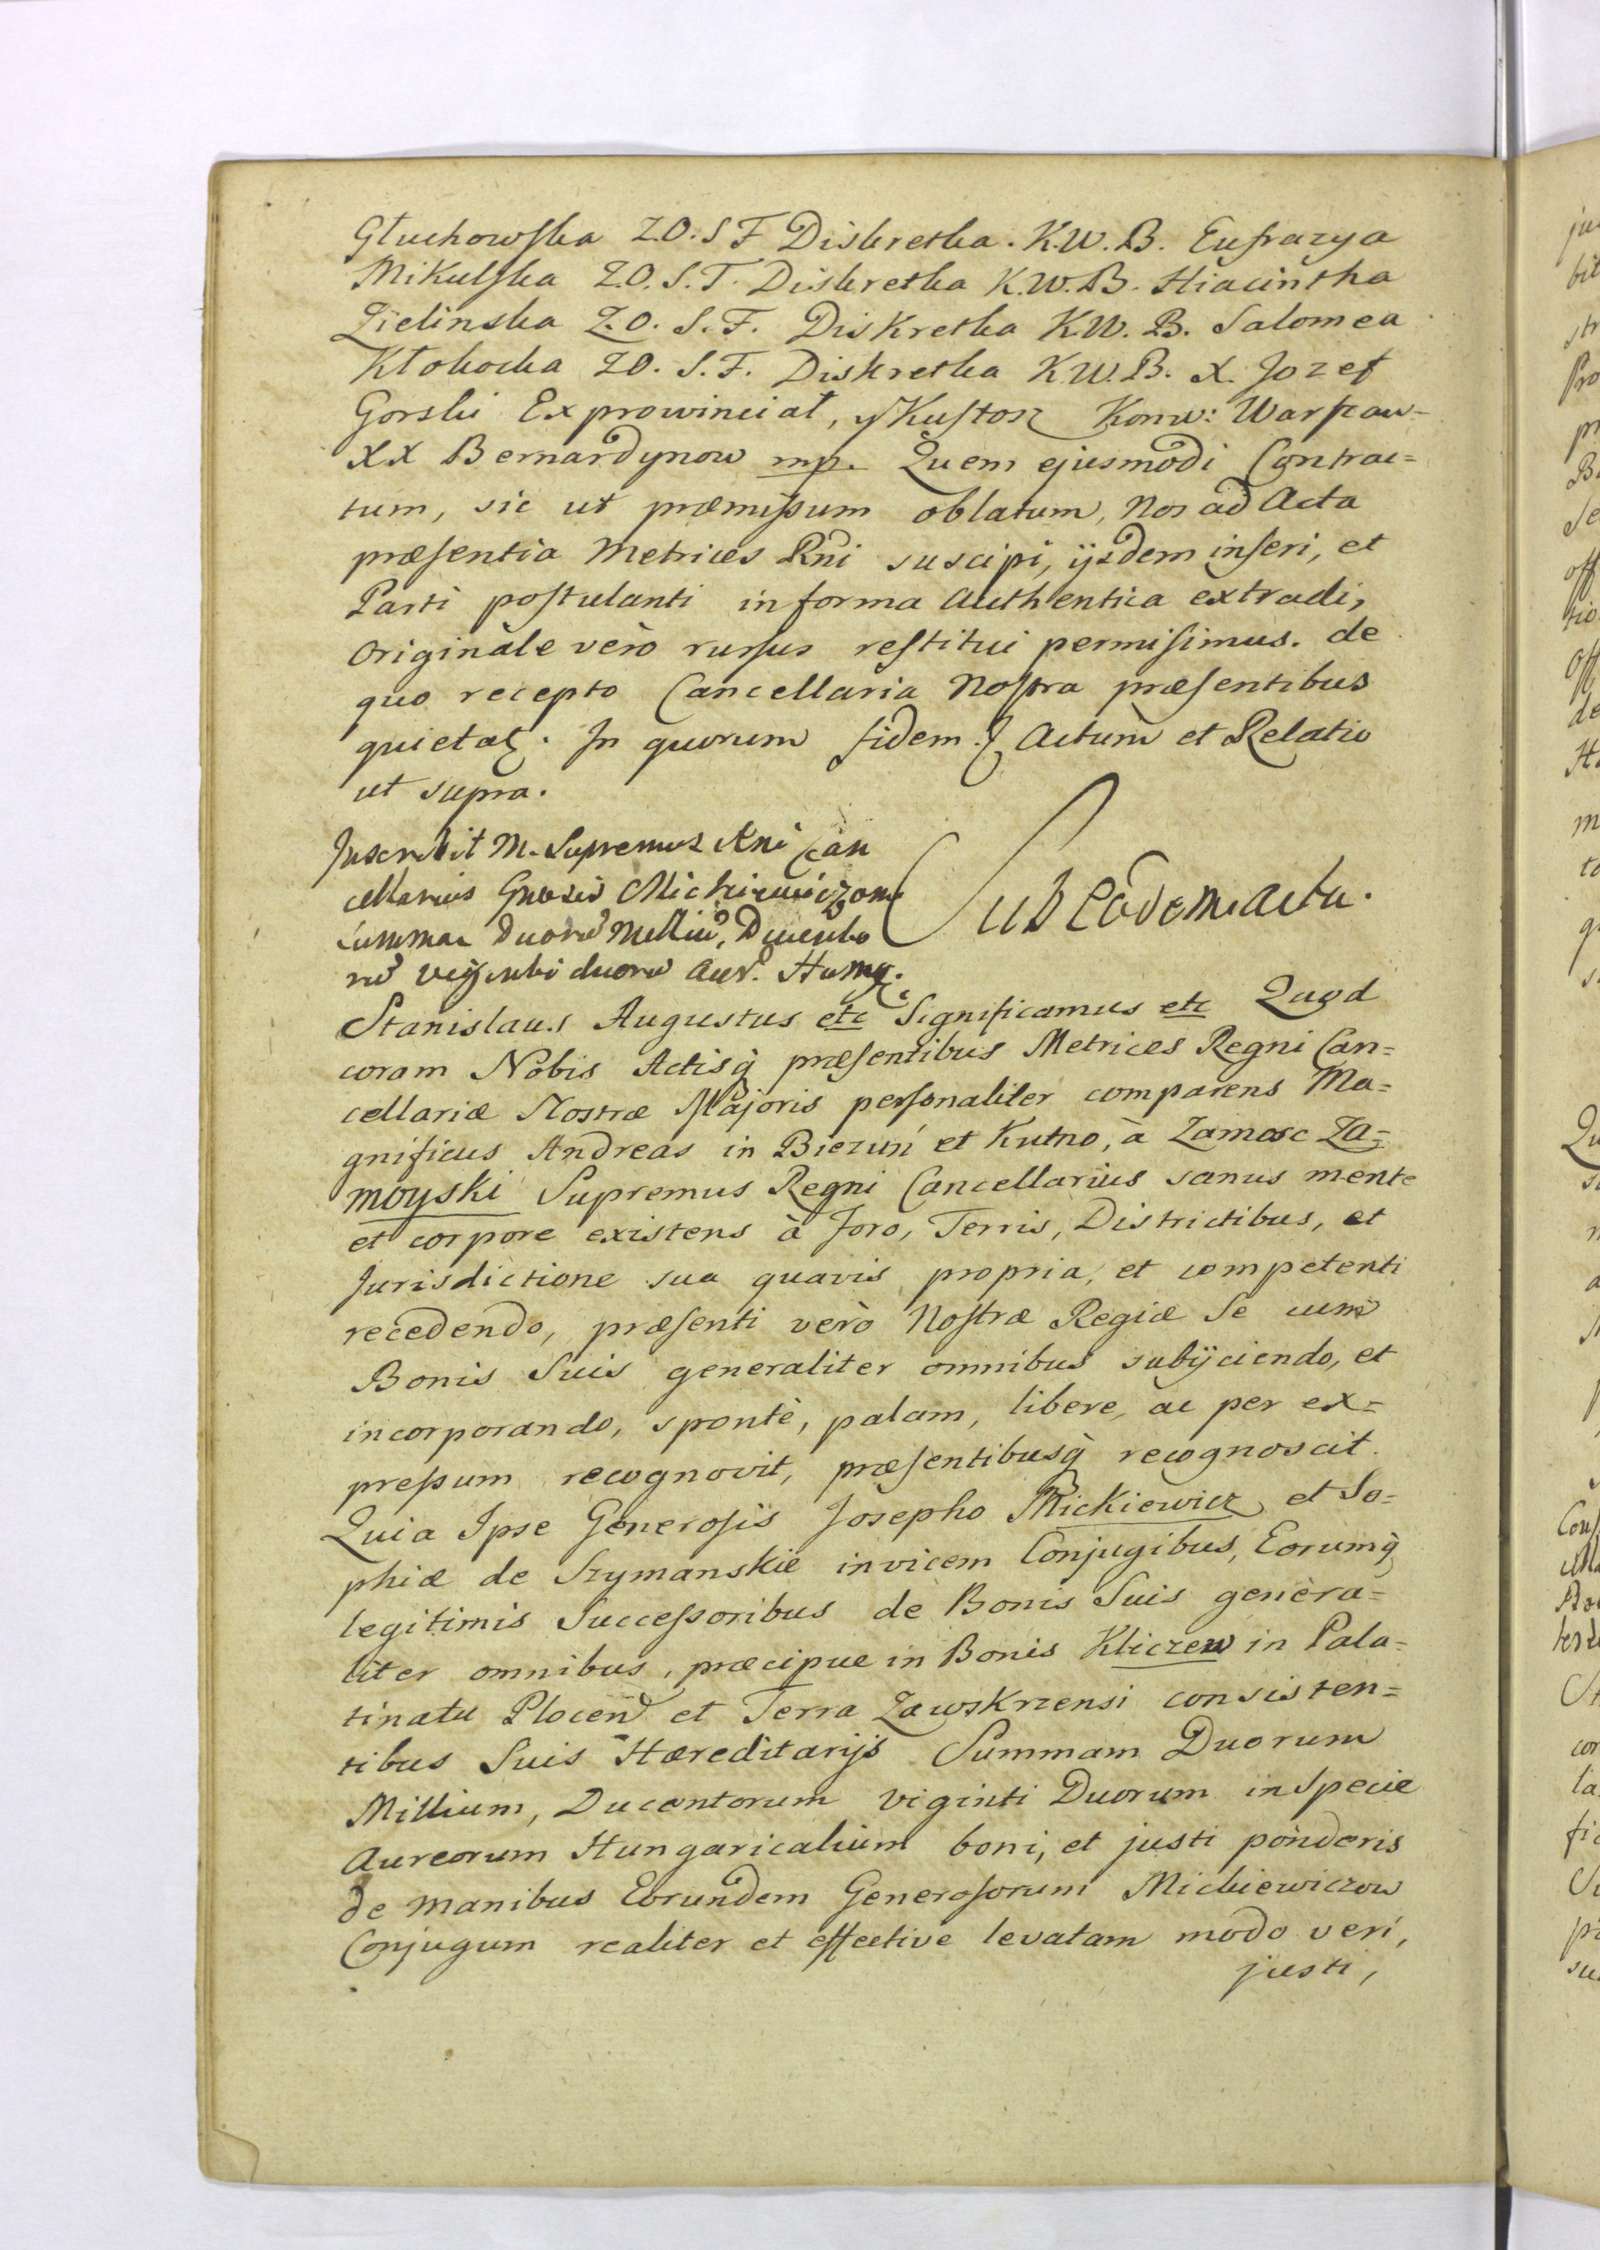 Głuchowska Z.O.S F Diskretka. K.W.B. Eufrazya
Mikulska Z.O.S.F. Diskretka K.W.B. Hiacintha
Zielinska Z.O.S.F. Diskretka K.W.B. Salomea
Kłobocka ZO.S.F. Diskretka K.W.B. X. Jozef
Gorski Exprowinciał, y Kustosz Konw: Warszaw=
XX Bernardynow mp. Quem ejusmodi Contrac=
tum, sic ut præmissum oblatum, Nos ad Acta
præsentia Metrices Rni suscipi, ijsdem inseri, et
Parti postulanti in forma Authentica extradi,
Originale verò rursus restitui permisimus. de
quo recepto Cancellaria Nostra præsentibus
quietat. In quorum fidem. Actum et Relatio
ut supra.
Inscribit M. Supremus Rni Can
cellarius Gnosis Mickiewiczom
summae Duorũ Milliũ, Ducento
rũ Viginti duorũ Aur. Hung.
Sub Eodem Actu.
Stanislaus Augustus etc Significamus etc Quod
coram Nobis Actisq̀ præsentibus Metrices Regni Can=
cellariæ Nostræ Majoris personaliter comparens Ma=
gnificus Andreas in Biezuń et Kutno, à Zamosc Za=
moyski Supremus Regni Cancellarius sanus mente
et corpore existens à Foro, Terris, Districtibus, et
Jurisdictione sua quavis propria, et competenti
recedendo, præsenti verò Nostræ Regiæ Se cum
Bonis Suis generaliter omnibus subijciendo, et
incorporando, spontè, palam, libere, ac per ex=
pressum recognovit, præsentibusq̀ recognoscit.
Quia Ipse Generosis Josepho Mickiewicz et So=
phiæ de Szymanskie invicem Conjugibus, Eorumq̀
legitimis Successoribus de Bonis Suis genera=
liter omnibus, præcipue in Bonis Kliczew in Pala=
tinatu Plocen et Terra Zawskrzensi consisten=
tibus Suis Hæreditarijs Summam Duorum
Millium, Ducentorum viginti Duorum in Specie
Aureorum Hungaricalium boni, et justi ponderis
de manibus Eorundem Generosorum Mickiewiczow
Conjugum realiter et effective levatam modo veri,
justi,